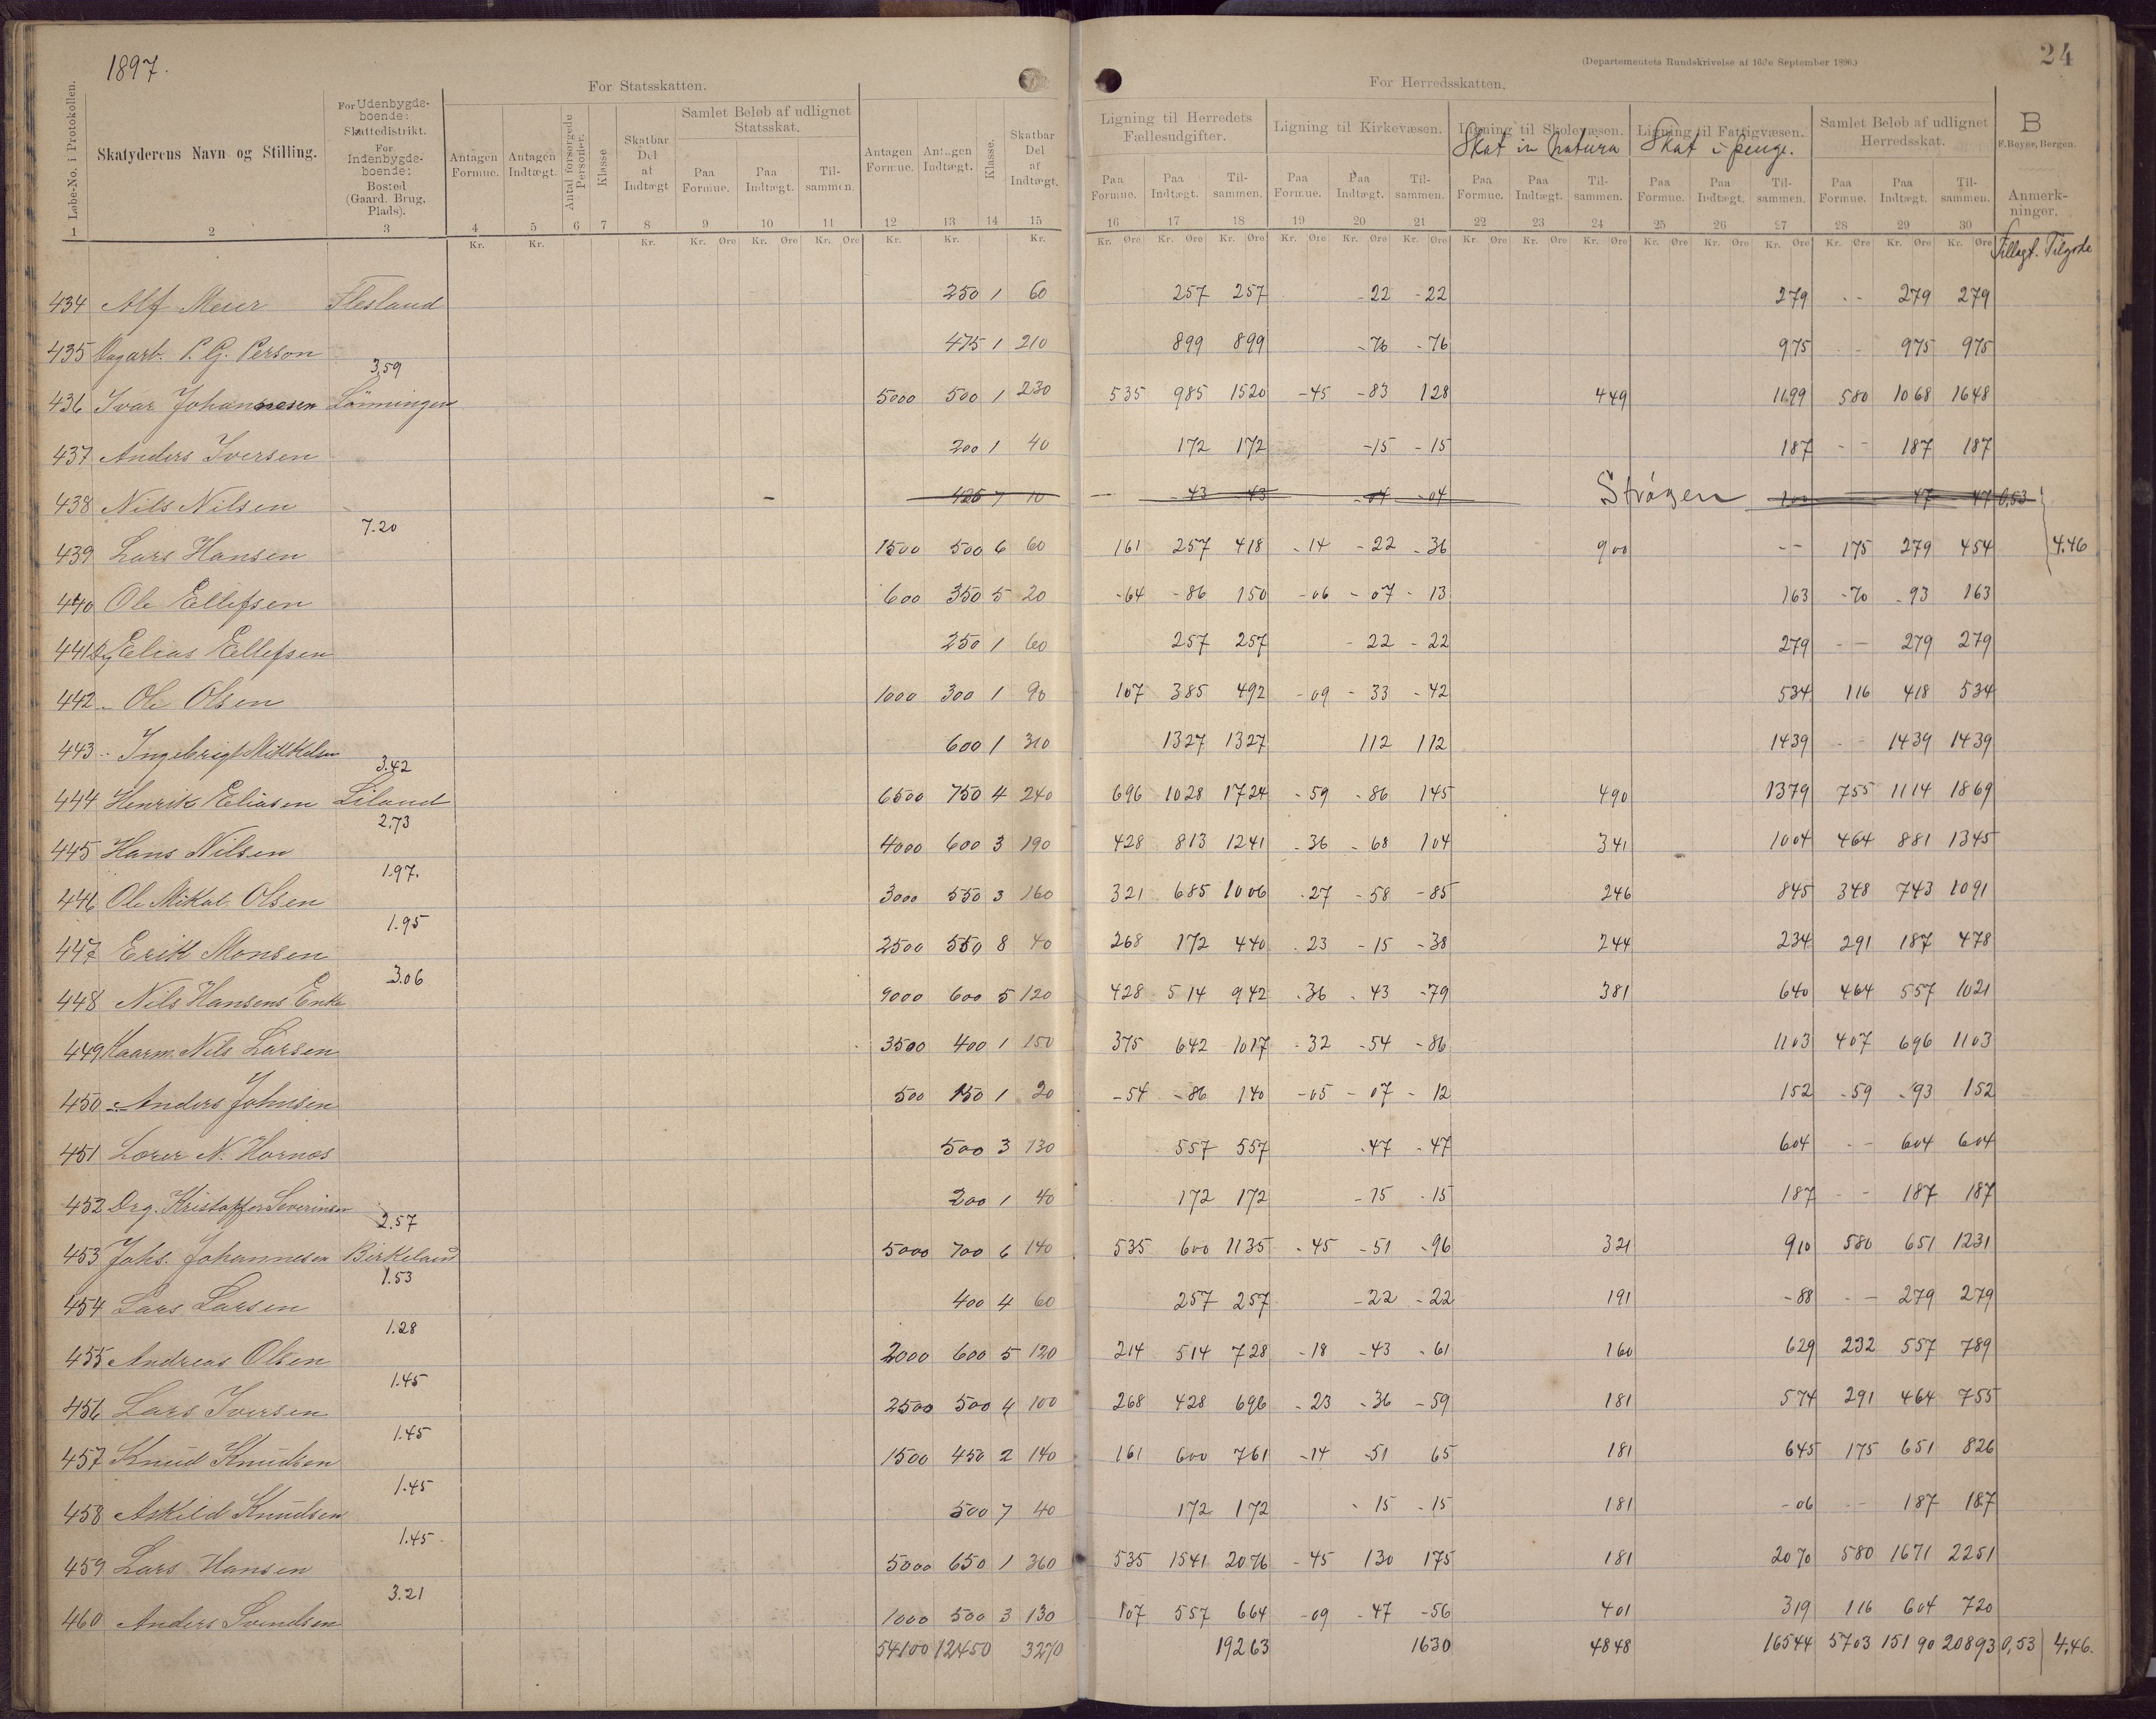 1897.
24
(Departementets Rundskrivelse af 16de September 1896.)
For Statsskatten.
For Herredsskatten.
Løbe-No. i Protokollen.
Skatyderens Navn og Stilling.
For Udenbygdeboende: Skattedistrikt. For Indenbygdeboende: Bosted (Gaard, Brug, Plads).
Antagen Formue.
Antagen Indtægt.
Antal forsørgede Personer.
Klasse
Skatbar Del af Indtægt
Samlet Beløb af udlignet Statsskat.
Paa Formue. Paa Indtægt. Tilsammen.
Antagen Formue. Antagen Indtægt. Klasse. Skatbar Del af Indtægt.
Ligning til Herredets Fællesudgifter.
Ligning til Kirkevæsen.
Ligning til Skolevæsen.
Skat in natura
Ligning til Fattigvæsen.
Skat i penge.
Samlet Beløb af udlignet Herredsskat.
B
F. Beyer, Bergen.
Paa Formue. Paa Indtægt. Tilsammen. Paa Formue. Paa Indtægt. Tilsammen. Paa Formue. Paa Indtægt. Tilsammen. Paa Formue. Paa Indtægt. Tilsammen. Paa Formue. Paa Indtægt. Tilsammen.
Anmerkninger.
1 2 3 4 5 6 7 8 9 10 11 12 13 14 15 16 17 18 19 20 21 22 23 24 25 26 27 28 29 30
Kr. Kr. Kr. Kr. Øre Kr. Øre Kr. Øre Kr. Kr. Kr. Kr. Øre Kr. Øre Kr. Øre Kr. Øre Kr. Øre Kr. Øre Kr. Øre Kr. Øre Kr. Øre Kr. Øre Kr. Øre Kr. Øre Kr. Øre Kr. Øre Kr. Øre
Tillagt. Tilgode
434 Alf Meier Flesland 250 1 60 257 257 -22 -22 279 -- 279 279
435 P. G. Person 475 1 210 899 899 -76 -76 975 -- 975 975
3,59
436 Ivar Johannesen Lönningen 5000 500 1 230 535 985 1520 -45 -83 128 449 1199 580 1068 1648
437 Anders Iversen 200 1 40 172 172 -15 -15 187 -- 187 187
438 Nils Nilsen - 425 7 10 -43 43 -04 -04 Strögen 100 47 47 0,53
7.20
439 Lars Hansen 1500 500 6 60 161 257 418 -14 -22 -36 900 -- 175 279 454 4.46
440 Ole Ellefsen 600 350 5 20 -64 -86 150 -06 -07 -13 163 -70 -93 163
441 Dg Elias Ellefsen 250 1 60 257 257 -22 -22 279 -- 279 279
442 - Ole Olsen 1000 300 1 90 107 385 492 -09 -33 -42 534 116 418 534
443 - Ingebrigt Mikkelsen 600 1 310 1327 1327 112 112 1439 -- 1439 1439
3.42
444 Henrik Eliasen Liland 6500 750 4 240 696 1028 1724 -59 -86 145 490 1379 755 1114 1869
2,73
445 Hans Nilsen 4000 600 3 190 428 813 1241 -36 -68 104 341 1004 464 881 1345
1.97.
446 Ole Mikal Olsen 3000 550 3 160 321 685 1006 -27 -58 -85 246 845 348 743 1091
1.95
447 Erik Monsen 2500 550 8 40 268 172 440 -23 -15 -38 244 234 291 187 478
3.06
448 Nils Hansens Enke 4000 600 5 120 428 514 942 -36 -43 -79 381 640 464 557 1021
449 Kaarm. Nils Larsen 3500 400 1 150 375 642 1017 -32 -54 -86 1103 407 696 1103
450 - Anders Johnsen 500 150 1 20 -54 -86 140 -05 -07 -12 152 -59 -93 152
451 Lærer N. Hornes 500 3 130 557 557 -47 -47 604 -- 604 604
452 Drg. Kristoffer Severinsen 200 1 40 172 172 -15 -15 187 -- 187 187
2.57
453 Johs. Johannesen Birkeland 5000 700 6 140 535 600 1135 -45 -51 -96 321 910 580 651 1231
1.53
454 Lars Larsen 400 4 60 257 257 -22 -22 191 -88 -- 279 279
1.28
455 Andreas Olsen 2000 600 5 120 214 514 728 -18 -43 -61 160 629 232 557 789
1.45
456 Lars Iversen 2500 500 4 100 268 428 696 -23 -36 -59 181 574 291 464 755
1.45
457 Knud Knudsen 1500 450 2 140 161 600 761 -14 -51 65 181 645 175 651 826
1.45
458 Askild Knudsen 500 7 40 172 172 -15 -15 181 -06 -- 187 187
1.45
459 Lars Hansen 5000 650 1 360 535 1541 2076 -45 130 175 181 2070 580 1671 2251
3.21
460 Anders Svendsen 1000 500 3 130 107 557 664 -09 -47 -56 401 319 116 604 720
54100 12450 3270 19263 1630 4848 16544 5703 15190 20893 0,53 4,46.